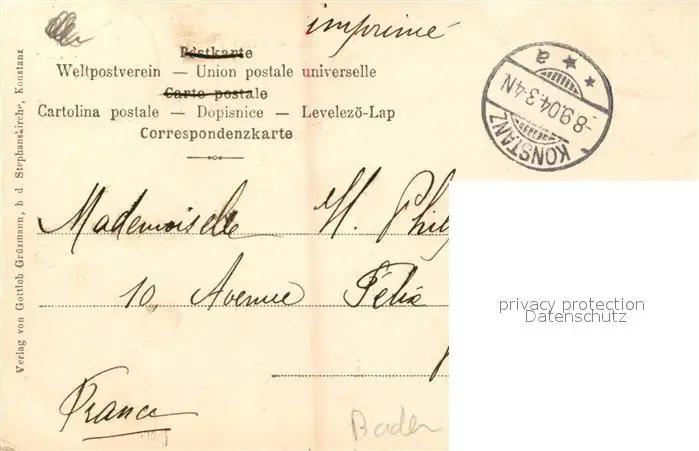 imprimé
Postkarte
Weltpostverein — Union postale universelle
Carte postale
Cartolina postale — Dopisnice — Levelező-Lap
Correspondenzkarte
KONSTANZ
-8.9.04.3-4N
* a *
Mademoiselle H.
10, Avenue Félix
France
Baden
Verlag von Gottlob Grüzmann, b d Stephanskirche, Konstanz
privacy protection
Datenschutz